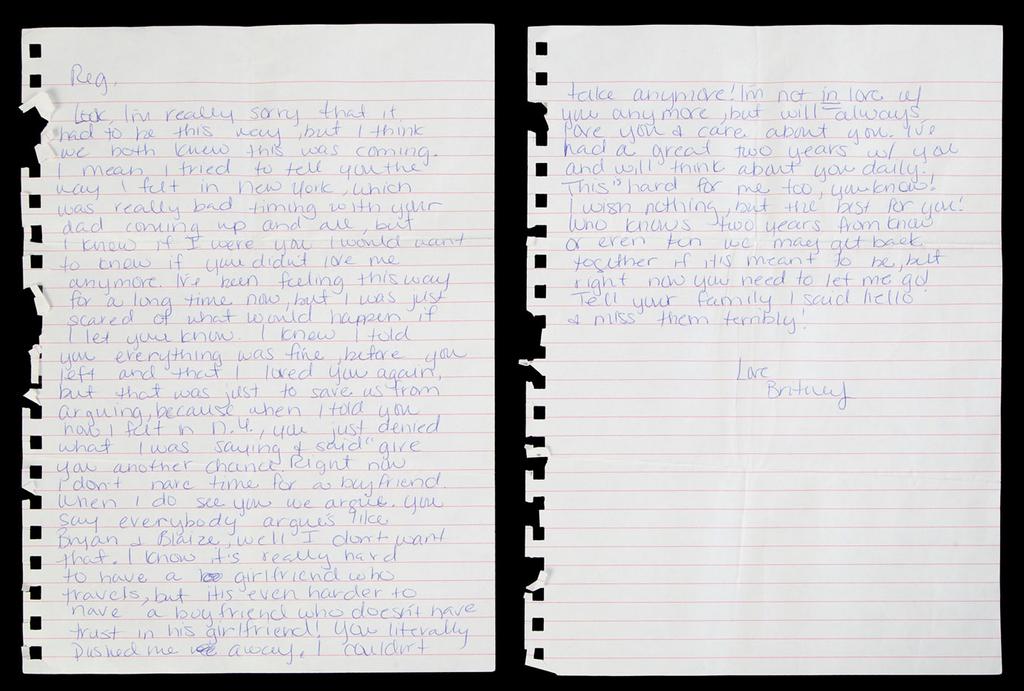 Reg,
Look, I'm really sorry that it
had to be this way, but I think
we both knew this was coming.
I mean I tried to tell you the
way I felt in New York, which
was really bad timing with your
dad coming up and all, but
I know if I were you I would want
to know if you didn't love me
anymore. I've been feeling this way
for a long time now, but I was just
scared of what would happen if
I let you know. I know I told
you everything was fine, before you
left and that I loved you again,
but that was just to save us from
arguing, because when I told you
how I felt in N.Y., you just denied
what I was saying & said "give
you another chance. Right now
I don't have time for a boyfriend.
When I do see you we argue. You
say everybody argues like
Bryan & Blaize, well I don't want
that. I know it's really hard
to have a girlfriend who
travels, but it's even harder to
have a boyfriend who doesn't have
trust in his girlfriend! You literally
pushed me away. I couldn't
take anymore! I'm not in love w/
you anymore, but will always
love you & care about you. I've
had a great two years w/ you
and will think about you daily.
This" hard for me too, you know!
I wish nothing, but the best for you!
Who knows two years from know
or even ten we may get back
together if it's meant to be, but
right now you need to let me go!
Tell your family I said hello
& miss them terribly!
Love
Britney